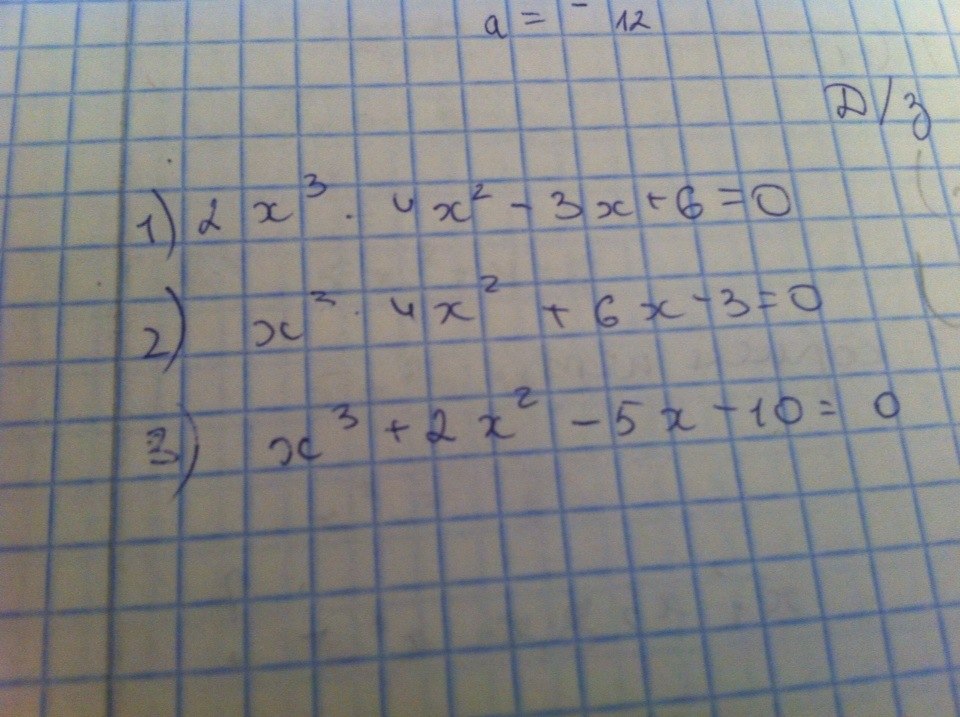 a = - 12
Д/з
1) 2x³ · 4x² - 3x + 6 = 0
2) x³ · 4x² + 6x - 3 = 0
3) x³ + 2x² - 5x - 10 = 0